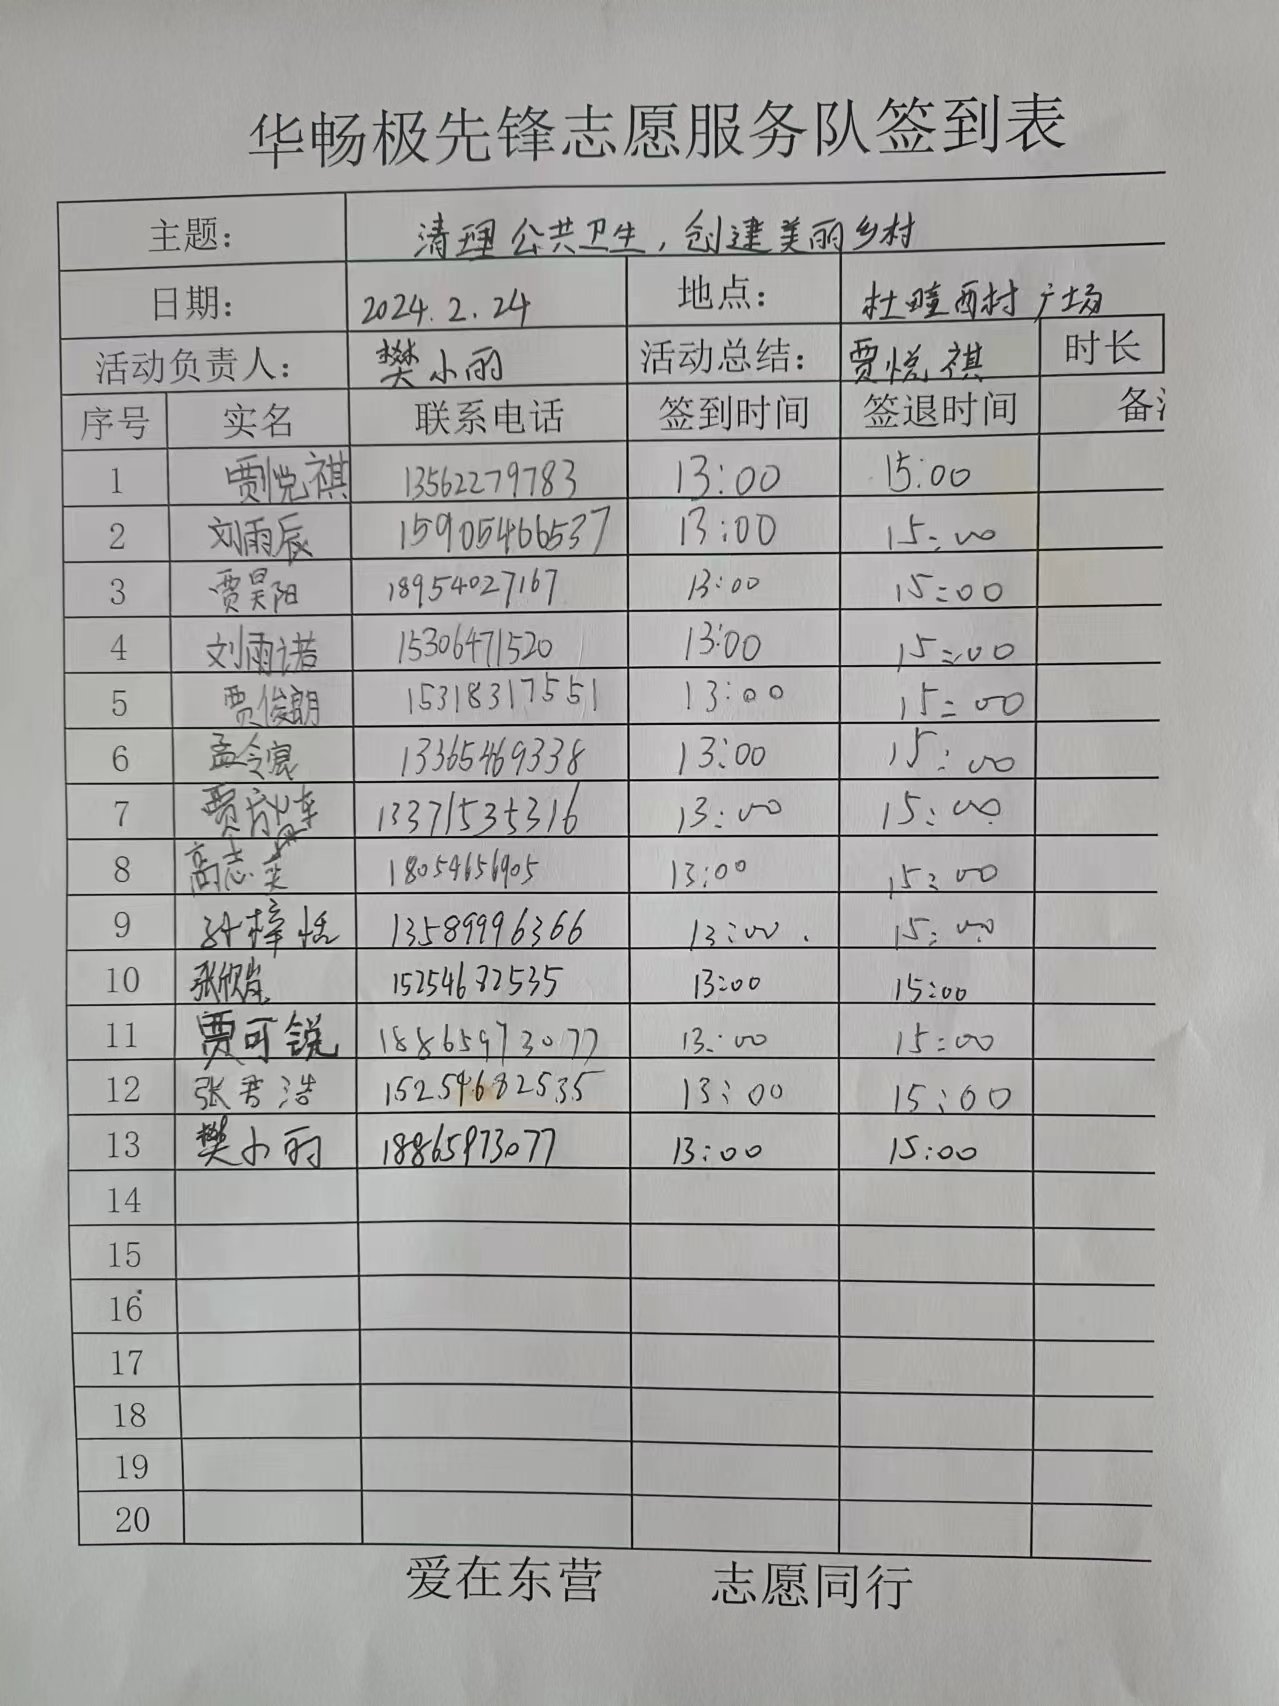 华畅极先锋志愿服务队签到表
主题： 清理公共卫生，创建美丽乡村
日期： 2024.2.24 地点： 杜疃西村广场
活动负责人： 樊小丽 活动总结： 贾悦祺 时长
序号 实名 联系电话 签到时间 签退时间 备
1 贾悦祺 13562279783 13:00 15:00
2 刘雨辰 15905466537 13:00 15:00
3 贾昊阳 18954027167 13:00 15:00
4 刘雨诺 15306471520 13:00 15:00
5 贾俊朗 15318317551 13:00 15:00
6 孟令宸 13365469338 13:00 15:00
7 贾 13371535316 13:00 15:00
8 高志 18054656905 13:00 15:00
9 孙梓恬 13589996366 13:00 15:00
10 张欣 15254682535 13:00 15:00
11 贾可锐 18865973077 13:00 15:00
12 张君浩 15254682535 13:00 15:00
13 樊小丽 18865973077 13:00 15:00
14
15
16
17
18
19
20
爱在东营 志愿同行